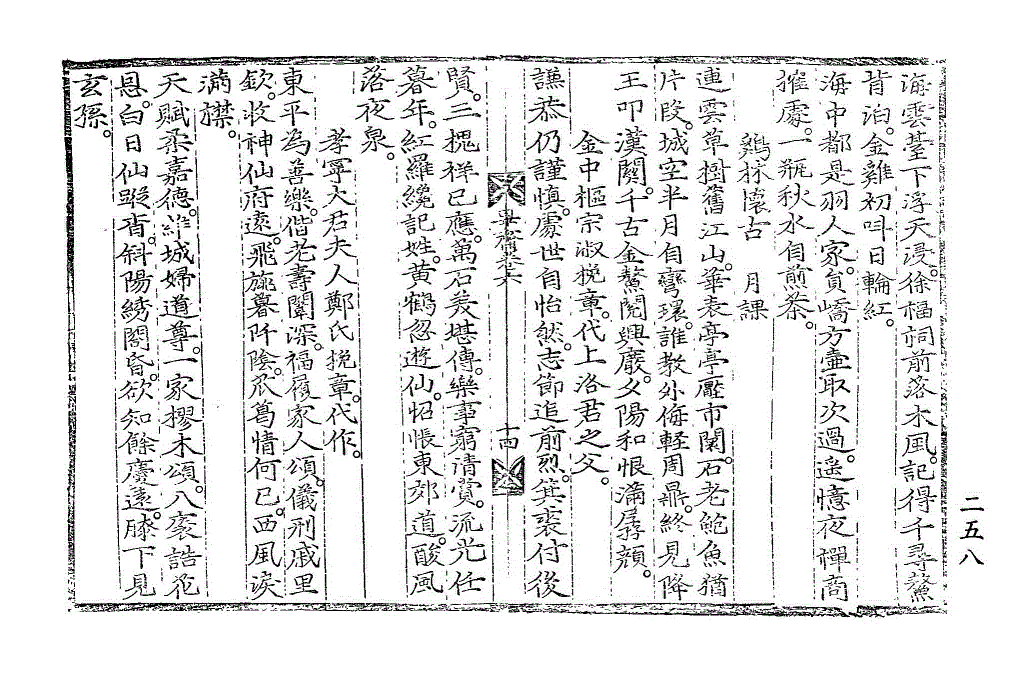 海雲䑓下浮天浸。徐福祠前落木風。記得千尋鰲
背泊。金雞初叫日輪紅。
海中都是羽人家。負嶠方壺取次過。遥憶夜禪商
搉處。一瓶秋水自煎茶。
鷄林懷古　月課
連雲草樹舊江山。華表亭亭壓市闤。石老鮑魚猶
片段。城空半月自彎環。誰敎外侮輕周鼎。終見降
王叩漢關。千古金鰲閱興廢。夕陽和恨滿孱顔。
金中樞宗淑挽章。代上洛君之父。
謙恭仍謹愼。處世自怡然。志節追前烈。箕裘付後
十四
賢。三槐祥已應。萬石羙堪傳。樂事窮淸賞。流光任
暮年。紅羅纔記姓。黄鶴忽遊仙。怊悵東郊道。酸風
落夜泉。
孝寧大君夫人鄭氏挽章。代作。
東平為善樂。偕老壽闈深。福履家人頌。儀刑戚里
欽。妝神仙府遠。飛旐暮阡陰。瓜葛情何已。西風淚
滿襟。
天賦柔嘉德。維城婦道尊。一家樛木頌。八袠誥花
恩。白日仙蹤杳。斜陽綉閣昏。欲知餘慶遠。膝下見
玄孫。
二五八